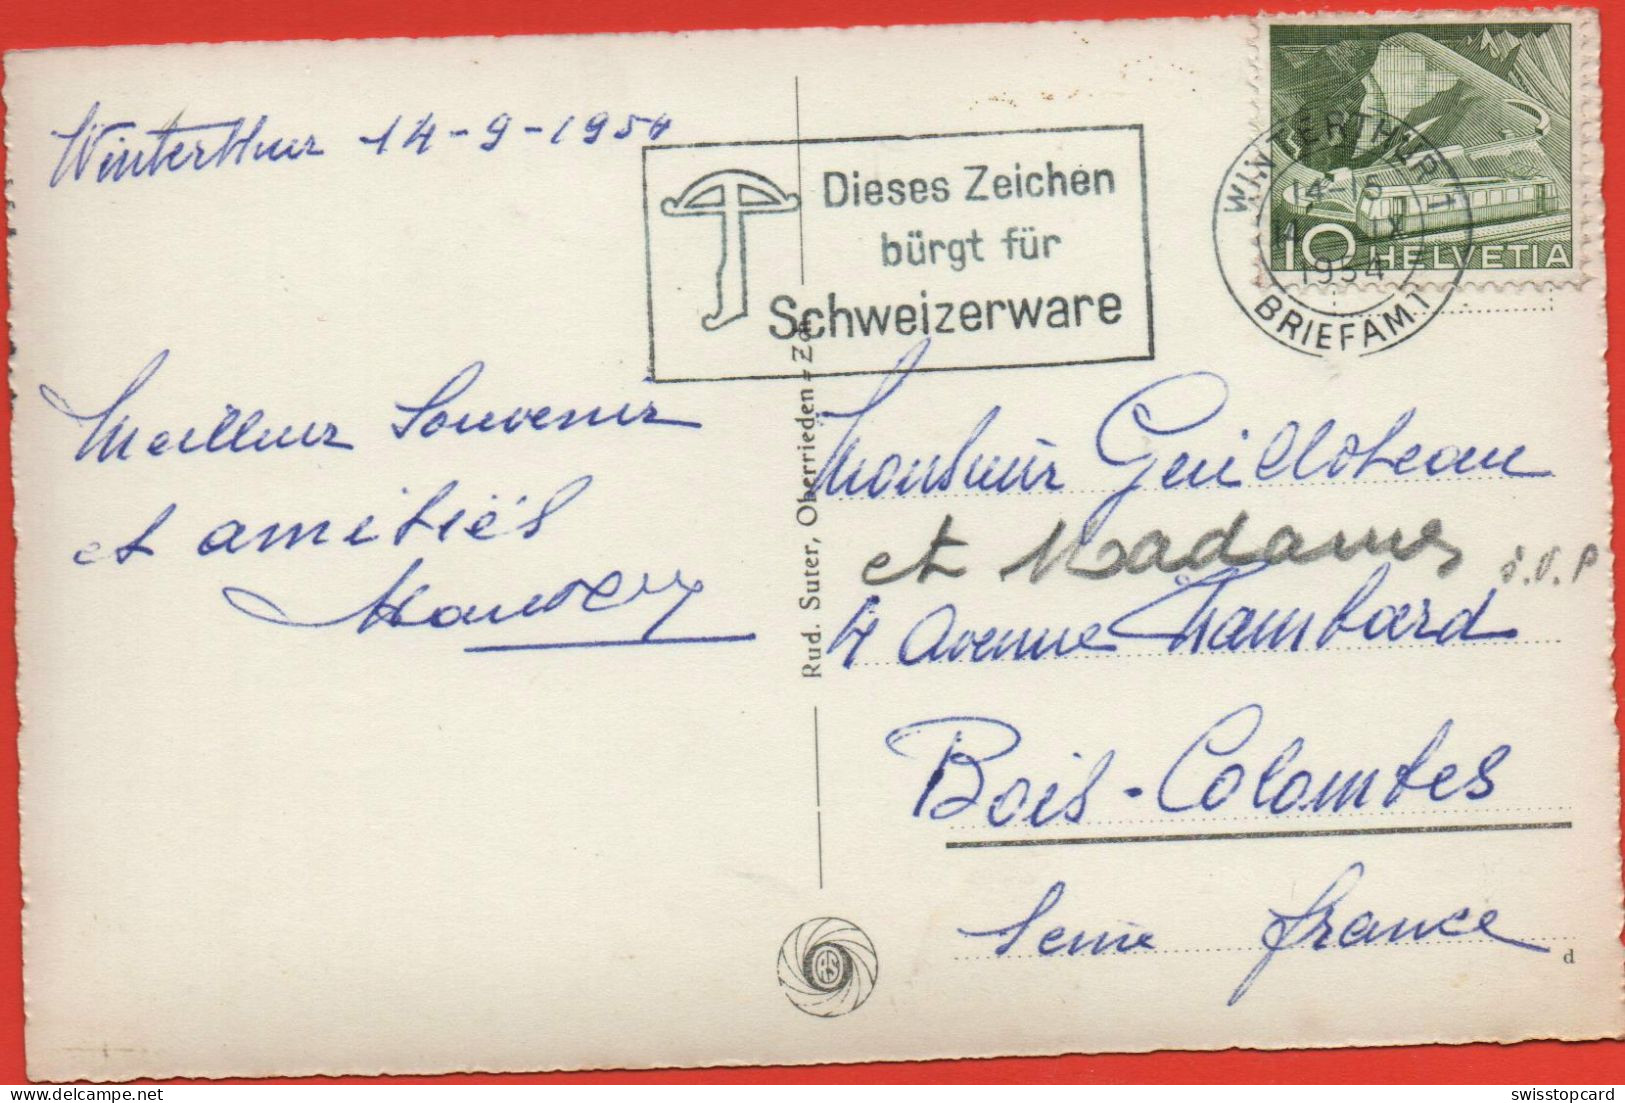 Winterthur 14-9-1954
Meilleur Souvenir
et amitiés
Dieses Zeichen
bürgt für
Schweizerware
WINTERTHUR 1
14-15
14 IX
1954
BRIEFAMT
10 HELVETIA
Rud. Suter, Oberrieden - Zch
RS
Monsieur Guilloteau
et Madame s.v.p
4 Avenue Chambard
Bois-Colombes
Seine france
d
swisstopcard